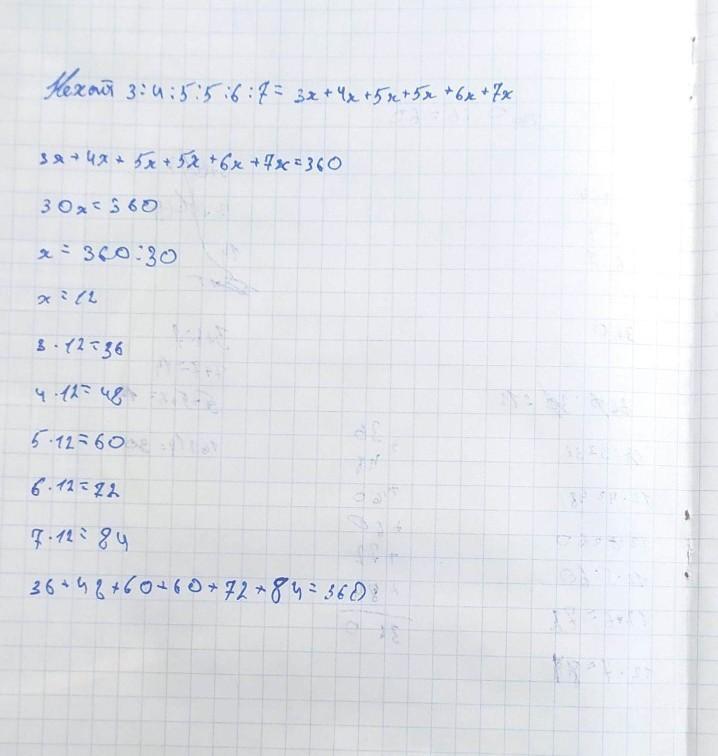 Нехай 3:4:5:5:6:7= 3x+4x+5x+5x+6x+7x
3x+4x+5x+5x+6x+7x=360
30x=360
x=360:30
x=12
3·12=36
4·12=48
5·12=60
6·12=72
7·12=84
36+48+60+60+72+84=360